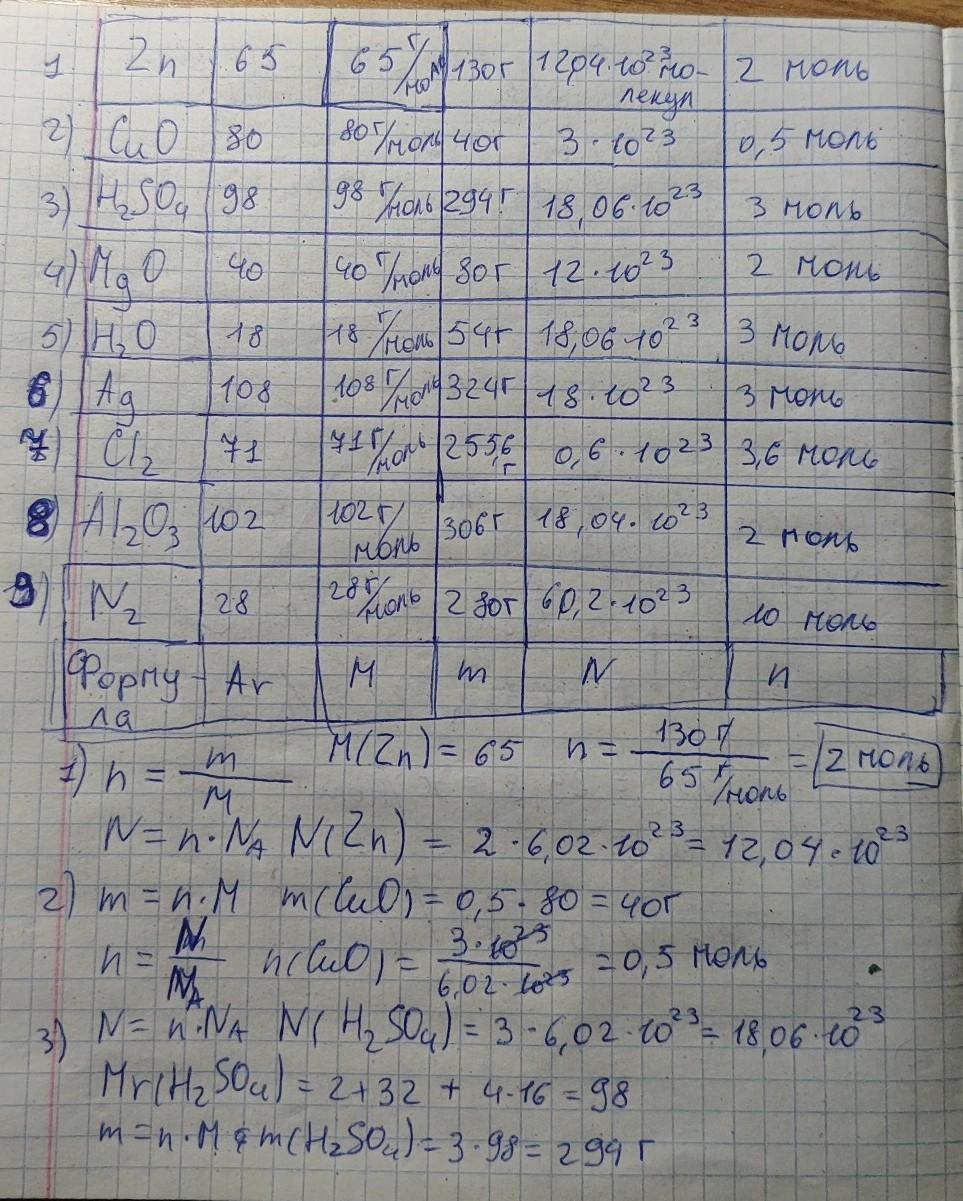 1. Zn 65 65 г/моль 130г 12,04·10²³ мо-
лекул 2 моль
2) CuO 80 80г/моль 40г 3·10²³ 0,5 моль
3) H₂SO₄ 98 98 г/моль 294г 18,06·10²³ 3 моль
4) MgO 40 40г/моль 80г 12·10²³ 2 моль
5) H₂O 18 18г/моль 54г 18,06·10²³ 3 моль
6) Ag 108 108г/моль 324г 18·10²³ 3 моль
7) Cl₂ 71 71г/моль 255,6 г 0,6·10²³ 3,6 моль
8) Al₂O₃ 102 102г/моль 306г 18,04·10²³ 2 моль
9) N₂ 28 28г/моль 280г 60,2·10²³ 10 моль
Форму-
ла Ar M m N n
1) n = m/M M(Zn) = 65 n = 130г/65 г/моль = 2 моль
N = n·Nᴀ N(Zn) = 2·6,02·10²³ = 12,04·10²³
2) m = n·M m(CuO) = 0,5·80 = 40г
n = N/Nᴀ n(CuO) = 3·10²³/6,02·10²³ = 0,5 моль
3) N = n·Nᴀ N(H₂SO₄) = 3·6,02·10²³ = 18,06·10²³
Mr(H₂SO₄) = 2+32 + 4·16 = 98
m = n·M m(H₂SO₄) = 3·98 = 294г